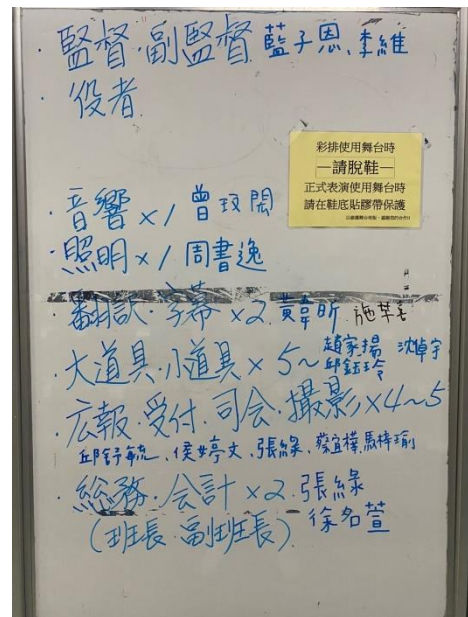 ・監督・副監督 藍子恩、李維
・役者
彩排使用舞台時
—請脫鞋—
正式表演使用舞台時
請在鞋底貼膠帶保護
・音響×1 曾玟閎
・照明×1 周書逸
・翻訳・字幕×2 黃韋昕 施
・大道具・小道具×5~ 趙家揚 沈卓宇
邱鈺玲
・広報・受付・司会・撮影×4~5
邱舒毓、侯婷文、張緣、蔡宜樺、馬梓瑜
・総務・会計×2 張緣
(班長・副班長) 徐名萱